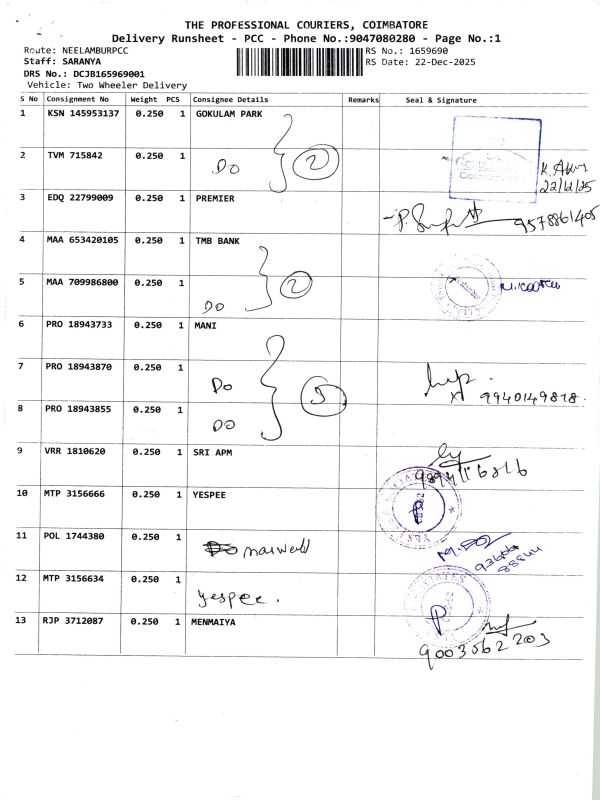 THE PROFESSIONAL COURIERS, COIMBATORE
Delivery Runsheet - PCC - Phone No.:9047080280 - Page No.:1
Route: NEELAMBURPCC RS No.: 1659690
Staff: SARANYA RS Date: 22-Dec-2025
DRS No.: DCJB165969001
Vehicle: Two Wheeler Delivery
S No Consignment No Weight PCS Consignee Details Remarks Seal & Signature
1 KSN 145953137 0.250 1 GOKULAM PARK
2 TVM 715842 0.250 1 Do 2
22/12/25
3 EDQ 22799009 0.250 1 PREMIER 9578861405
4 MAA 653420105 0.250 1 TMB BANK
5 MAA 709986800 0.250 1 Do 2
6 PRO 18943733 0.250 1 MANI
7 PRO 18943870 0.250 1 Do 3
9940149878
8 PRO 18943855 0.250 1 Do
9 VRR 1810620 0.250 1 SRI APM
10 MTP 3156666 0.250 1 YESPEE
11 POL 1744380 0.250 1
12 MTP 3156634 0.250 1 yespee.
13 RJP 3712087 0.250 1 MENMAIYA
9003062203